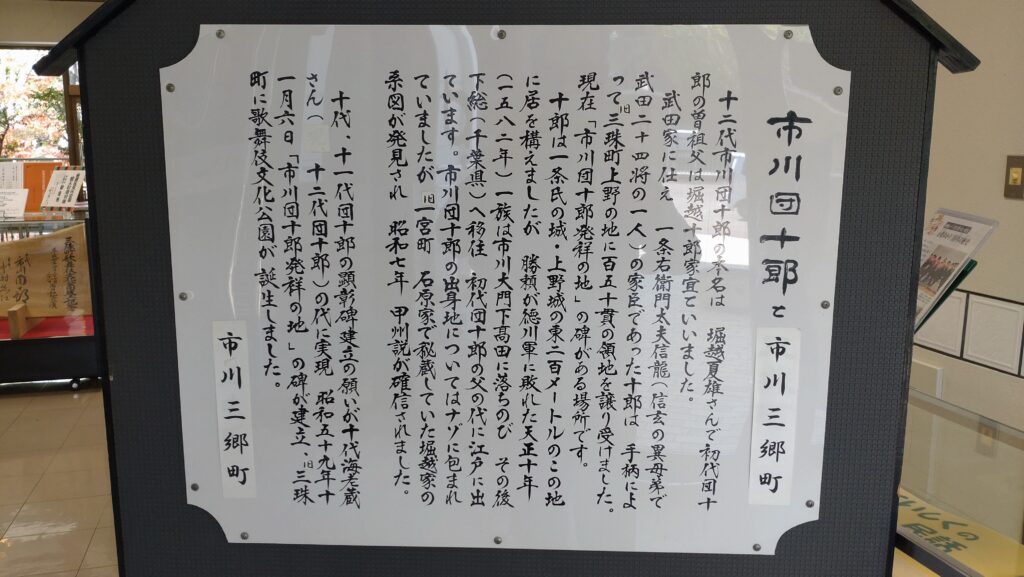 市川団十郎と市川三郷町
十二代市川団十郎の本名は 堀越夏雄さんで初代団十
郎の曽祖父は堀越十郎家宣といいました。
武田家に仕え 一条右衛門太夫信龍(信玄の異母弟で
武田二十四将の一人)の家臣であった十郎は 手柄によ
って旧三珠町上野の地に百五十貫の領地を譲り受けました。
現在「市川団十郎発祥の地」の碑がある場所です。
十郎は一条氏の城・上野城の東二百メートルのこの地
に居を構えましたが 勝頼が徳川軍に敗れた天正十年
(一五八二年)一族は市川大門下高田に落ちのび その後
下総(千葉県)へ移住 初代団十郎の父の代に江戸に出
ています。市川団十郎の出身地についてはナゾに包まれ
ていましたが 旧一宮町 石原家で秘蔵していた堀越家の
系図が発見され 昭和七年 甲州説が確信されました。
十代、十一代団十郎の顕彰碑建立の願いが十代海老蔵
さん( 十二代団十郎)の代に実現 昭和五十九年十
一月六日「市川団十郎発祥の地」の碑が建立、旧三珠
町に歌舞伎文化公園が誕生しました。
市川三郷町
民話